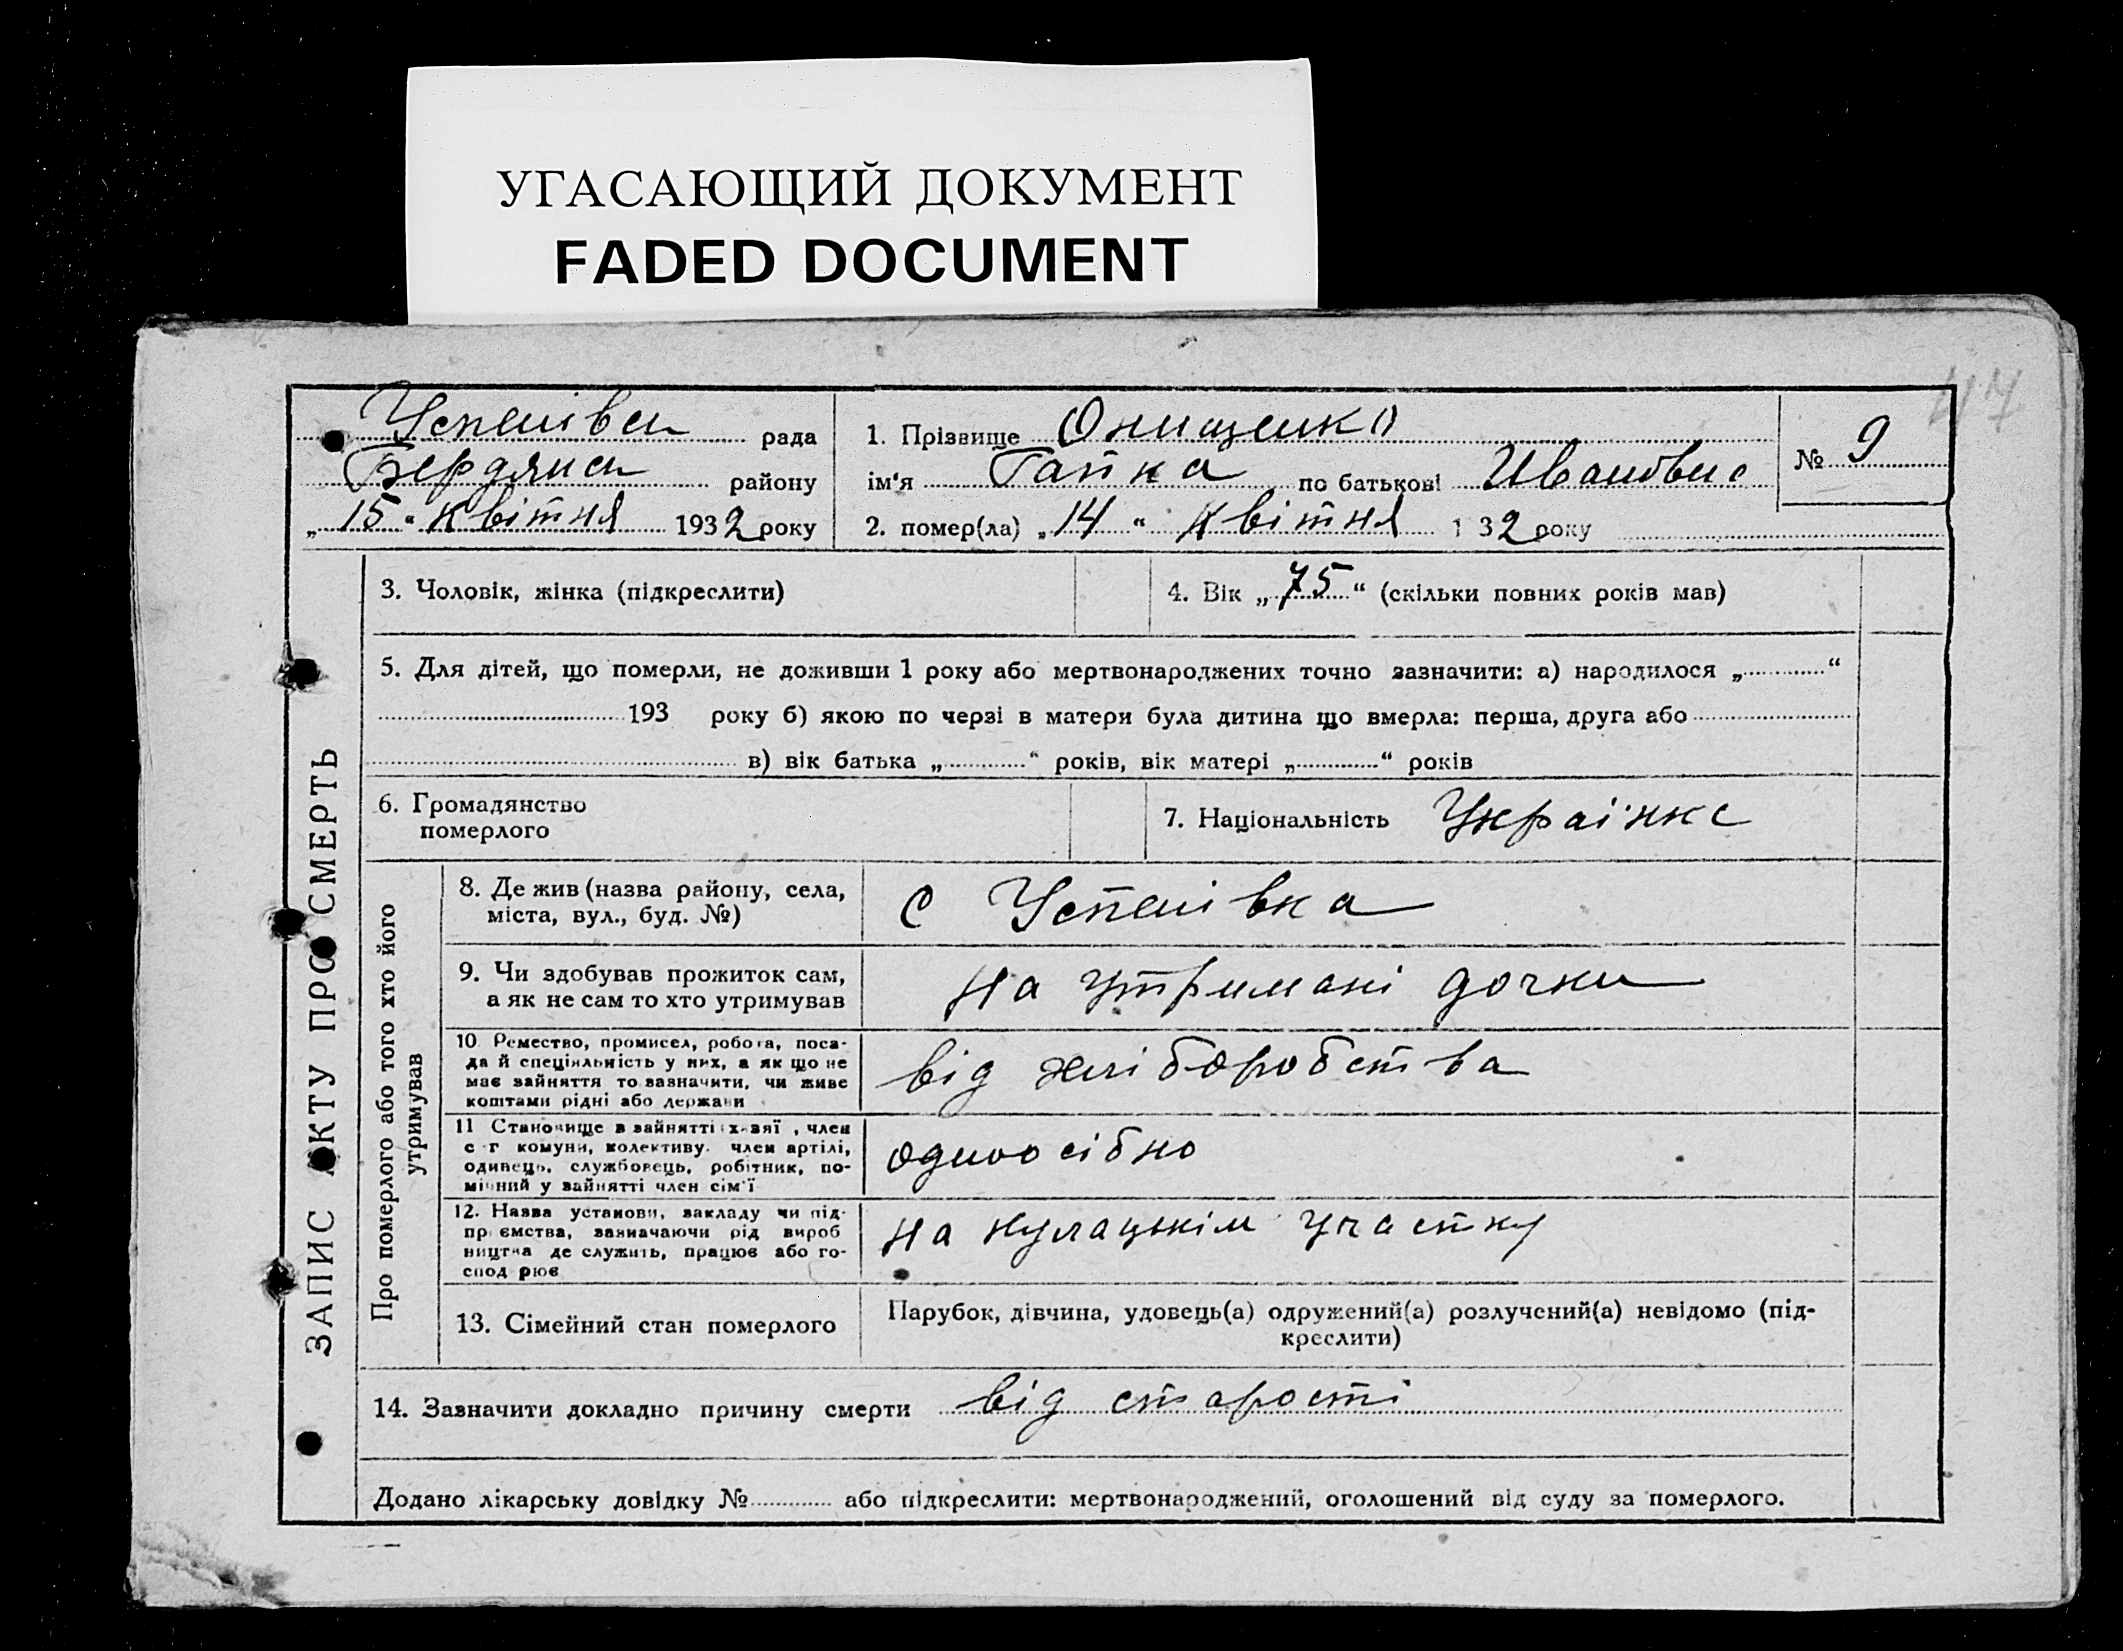 УГАСАЮЩИЙ ДОКУМЕНТ
FADED DOCUMENT
47
Успенівськ рада
Бердянськ району
„15“ Квітня 1932 року
1. Прізвище Онищенко
ім'я Гапка по батькові Ивановна
2. помер(ла) „14“ Квітня 1 32 року
№ 9
ЗАПИС АКТУ ПРО СМЕРТЬ
3. Чоловік, жінка (підкреслити)
4. Вік „75“ (скільки повних років мав)
5. Для дітей, що померли, не доживши 1 року або мертвонароджених точно зазначити: а) народилося „ “
193 року б) якою по черзі в матери була дитина що вмерла: перша, друга або
в) вік батька „ “ років, вік матері „ “ років
6. Громадянство
померлого
7. Національність Українка
Про померлого або того хто його
утримував
8. Де жив (назва району, села,
міста, вул., буд. №)
с Успенівка
9. Чи здобував прожиток сам,
а як не сам то хто утримував
На утримані дочки
10 Ремество, промисел, робота, поса-
да й спеціяльність у них, а як що не
має зайняття то зазначити, чи живе
коштами рідні або держави
від хліборобства
11 Становище в зайнятті: хазяї, член
с-г комуни, колективу, член артілі,
одинець, службовець, робітник, по-
мічний у зайнятті член сім'ї
одноосібно
12. Назва установи, закладу чи під-
приємства, зазначаючи рід вироб
ництва де служить, працює або го-
сподарює
На кулацькім участку
13. Сімейний стан померлого
Парубок, дівчина, удовець(а) одружений(а) розлучений(а) невідомо (під-
креслити)
14. Зазначити докладно причину смерти від старості
Додано лікарську довідку № або підкреслити: мертвонароджений, оголошений від суду за померлого.